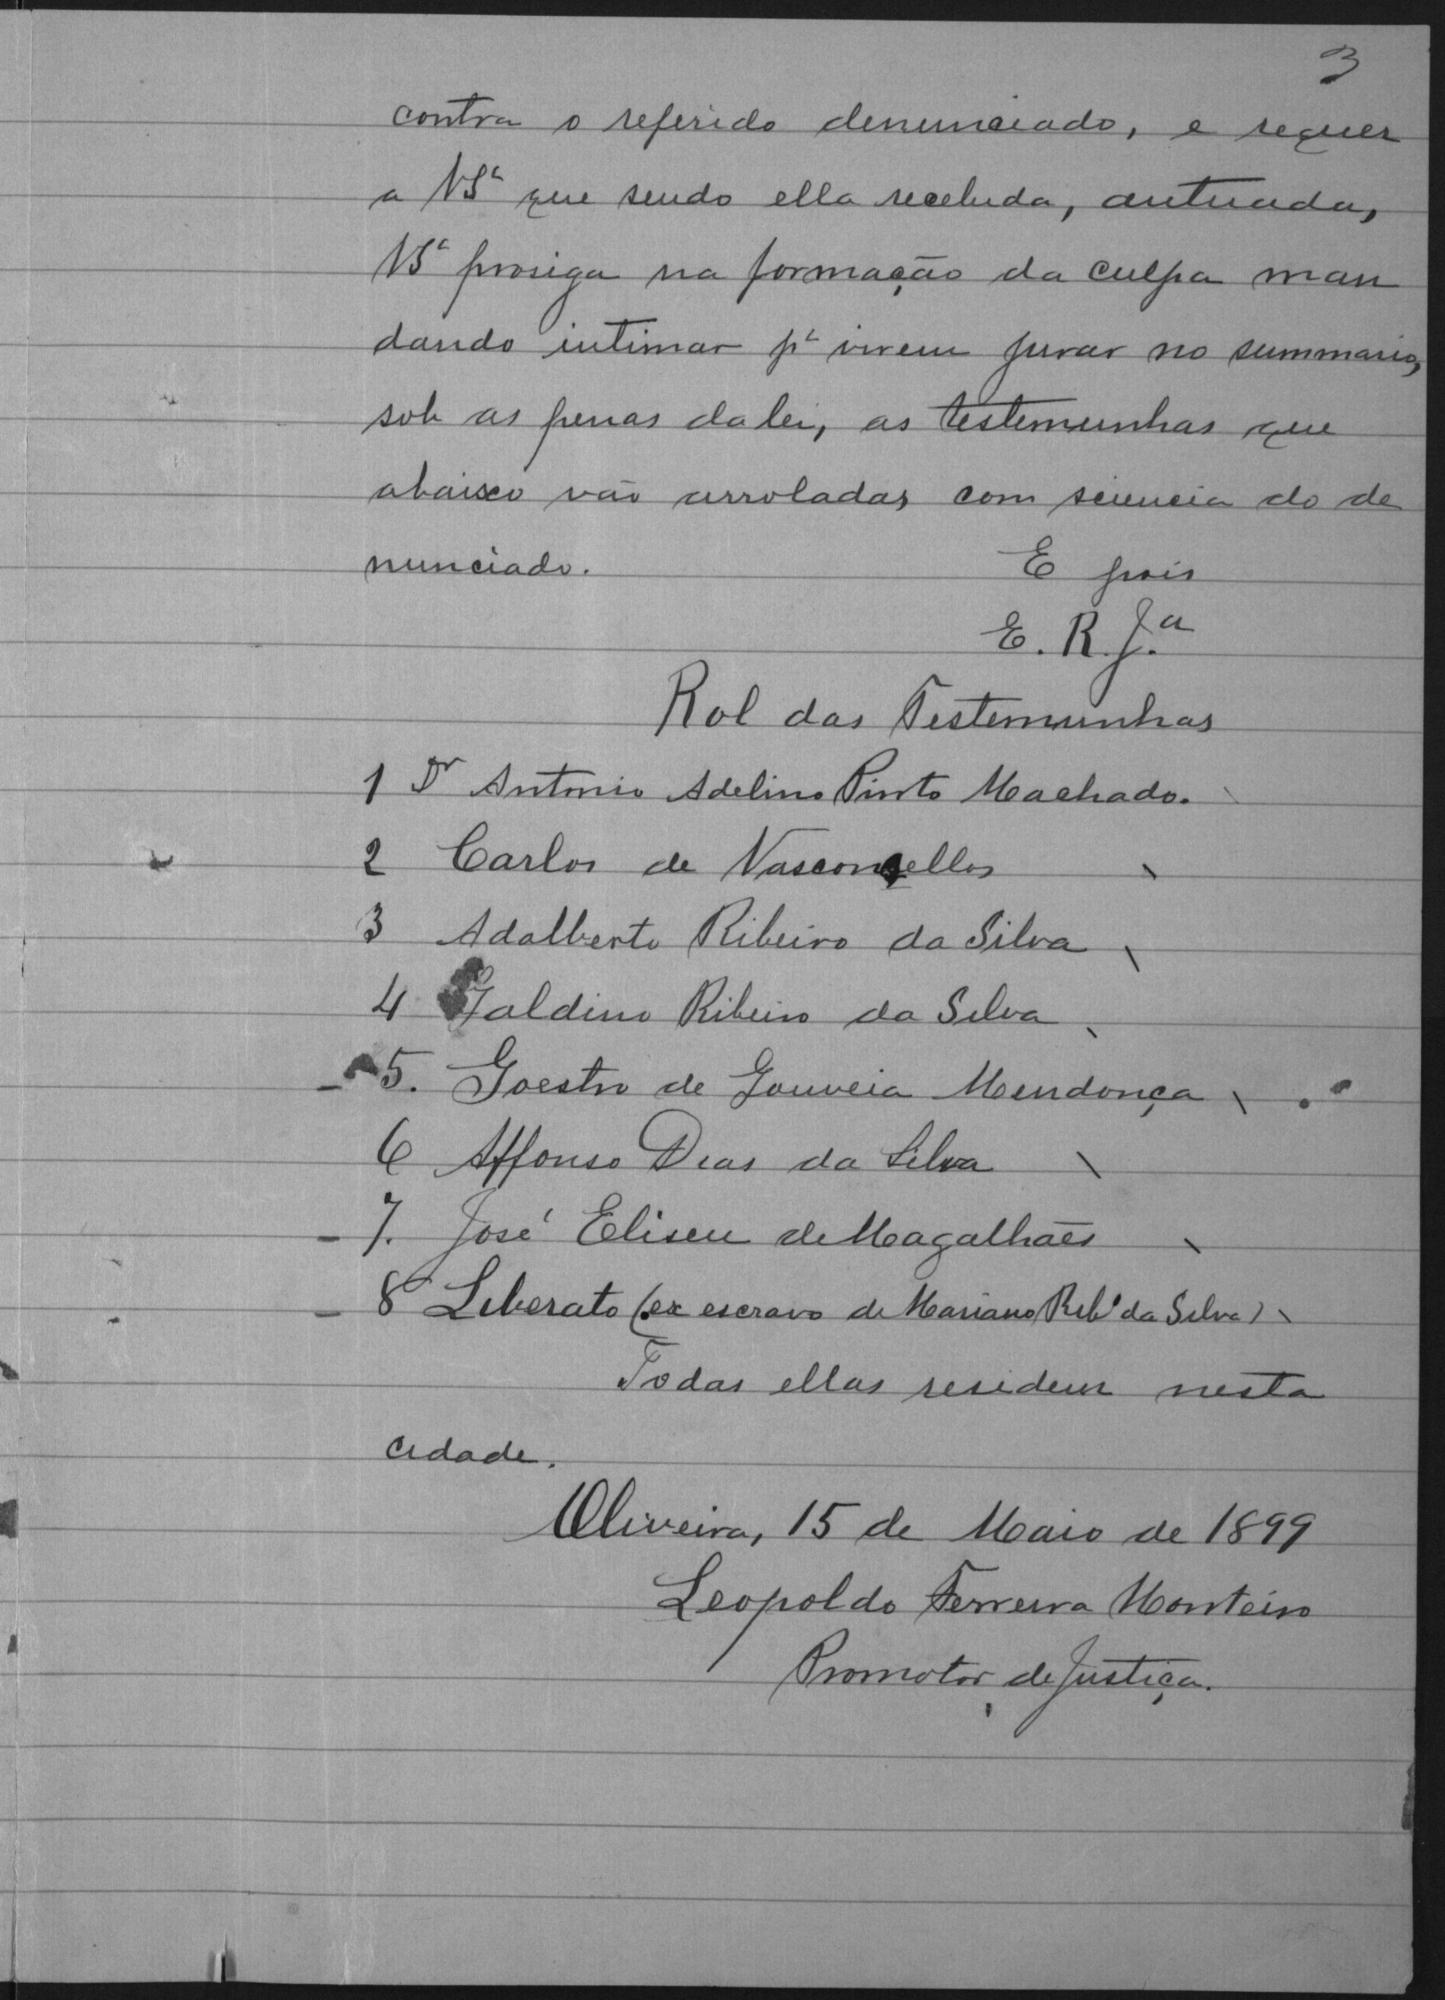 3
contra o referido denunciado, e requer
a VSª que sendo ella recebida, autuada,
VSª prosiga na formação da culpa man
dando intimar pª virem jurar no summario,
sob as penas da lei, as testemunhas que
abaixo vão arroladas com sciencia do de
nunciado. E pois
E. R. J.ª
Rol das Testemunhas
1 Dr Antonio Adelino Pinto Machado.
2 Carlos de Vasconcellos
3 Adalberto Ribeiro da Silva
4 Galdino Ribeiro da Silva
5. de Gouveia Mendonça
6 Affonso Dias da Silva
7. José Eliseu de Magalhães
8 Liberato (ex escravo de Mariano Ribº da Silva)
Todas ellas residem nesta
cidade.
Oliveira, 15 de Maio de 1899
Leopoldo Ferreira Monteiro
Promotor de Justiça.